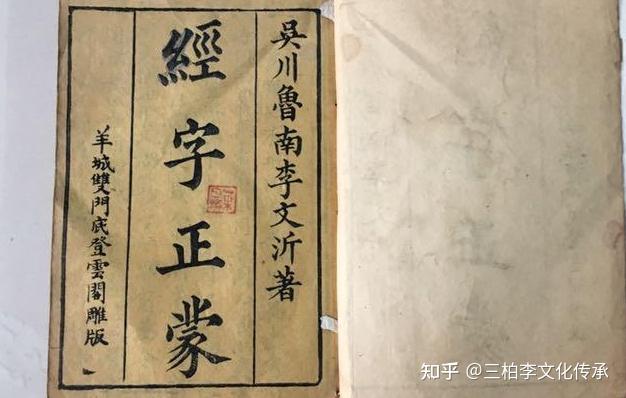 吳川魯南李文沂著
經字正蒙
羊城雙門底登雲閣雕版
知乎 @三柏李文化传承